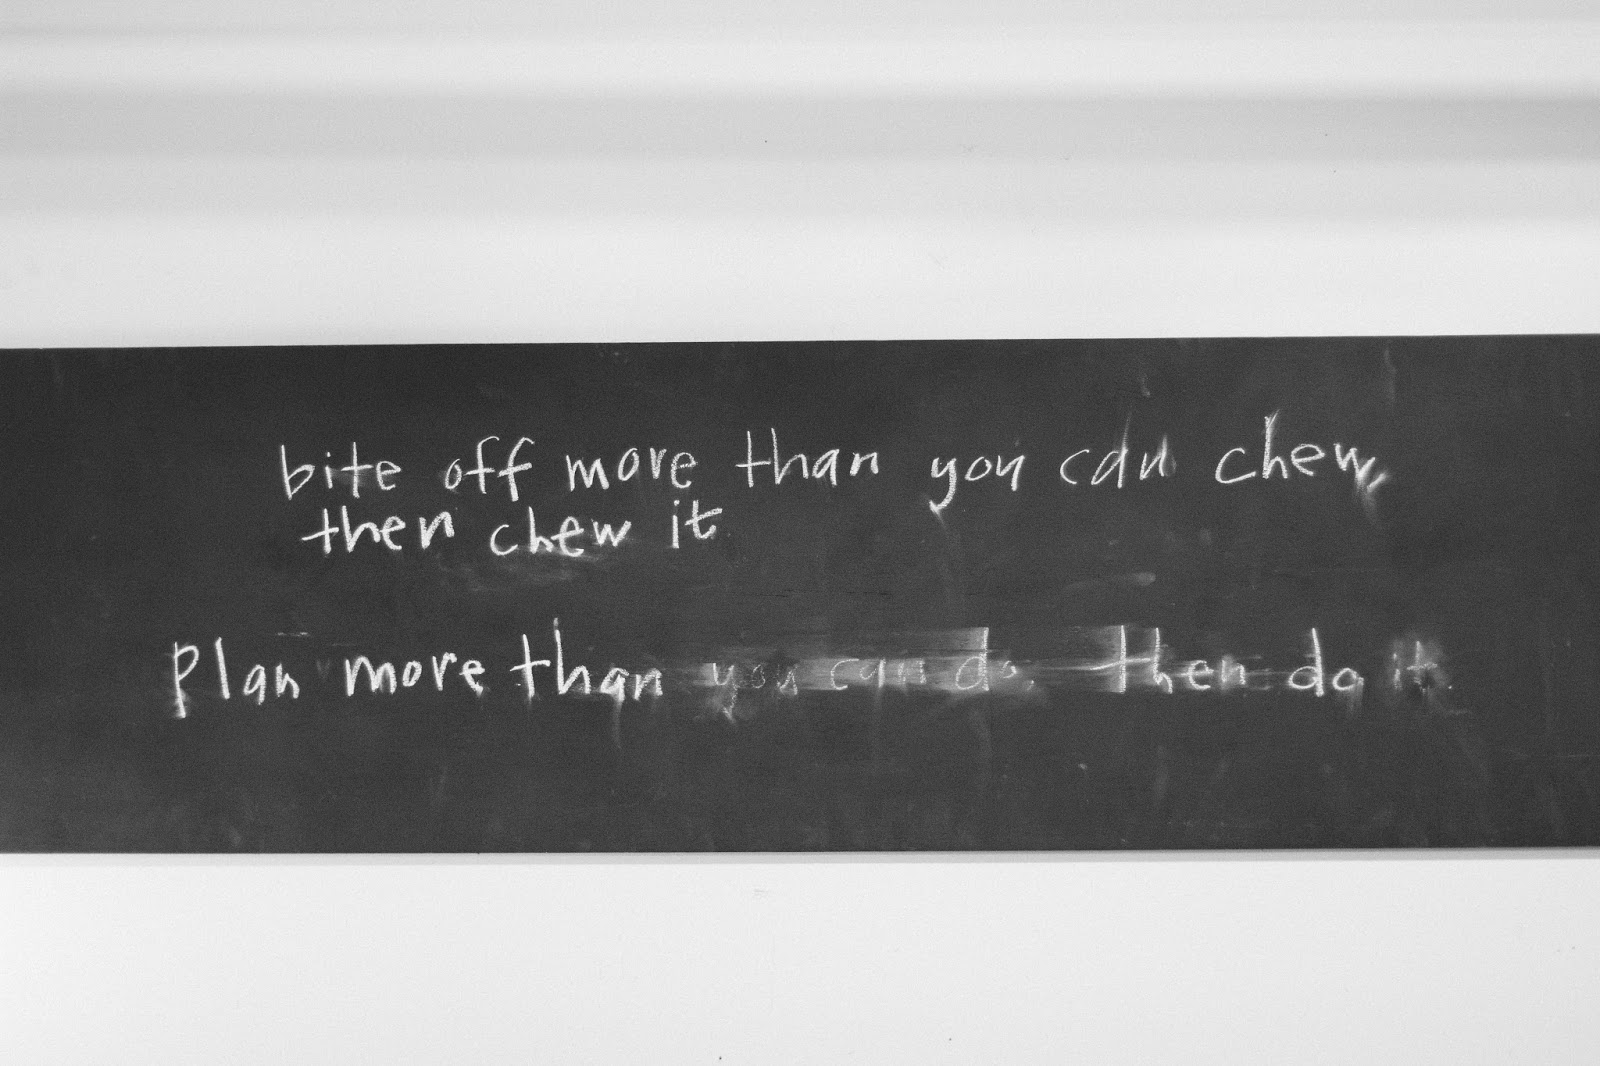 bite off more than you can chew,
then chew it
Plan more than you can do. Then do it.